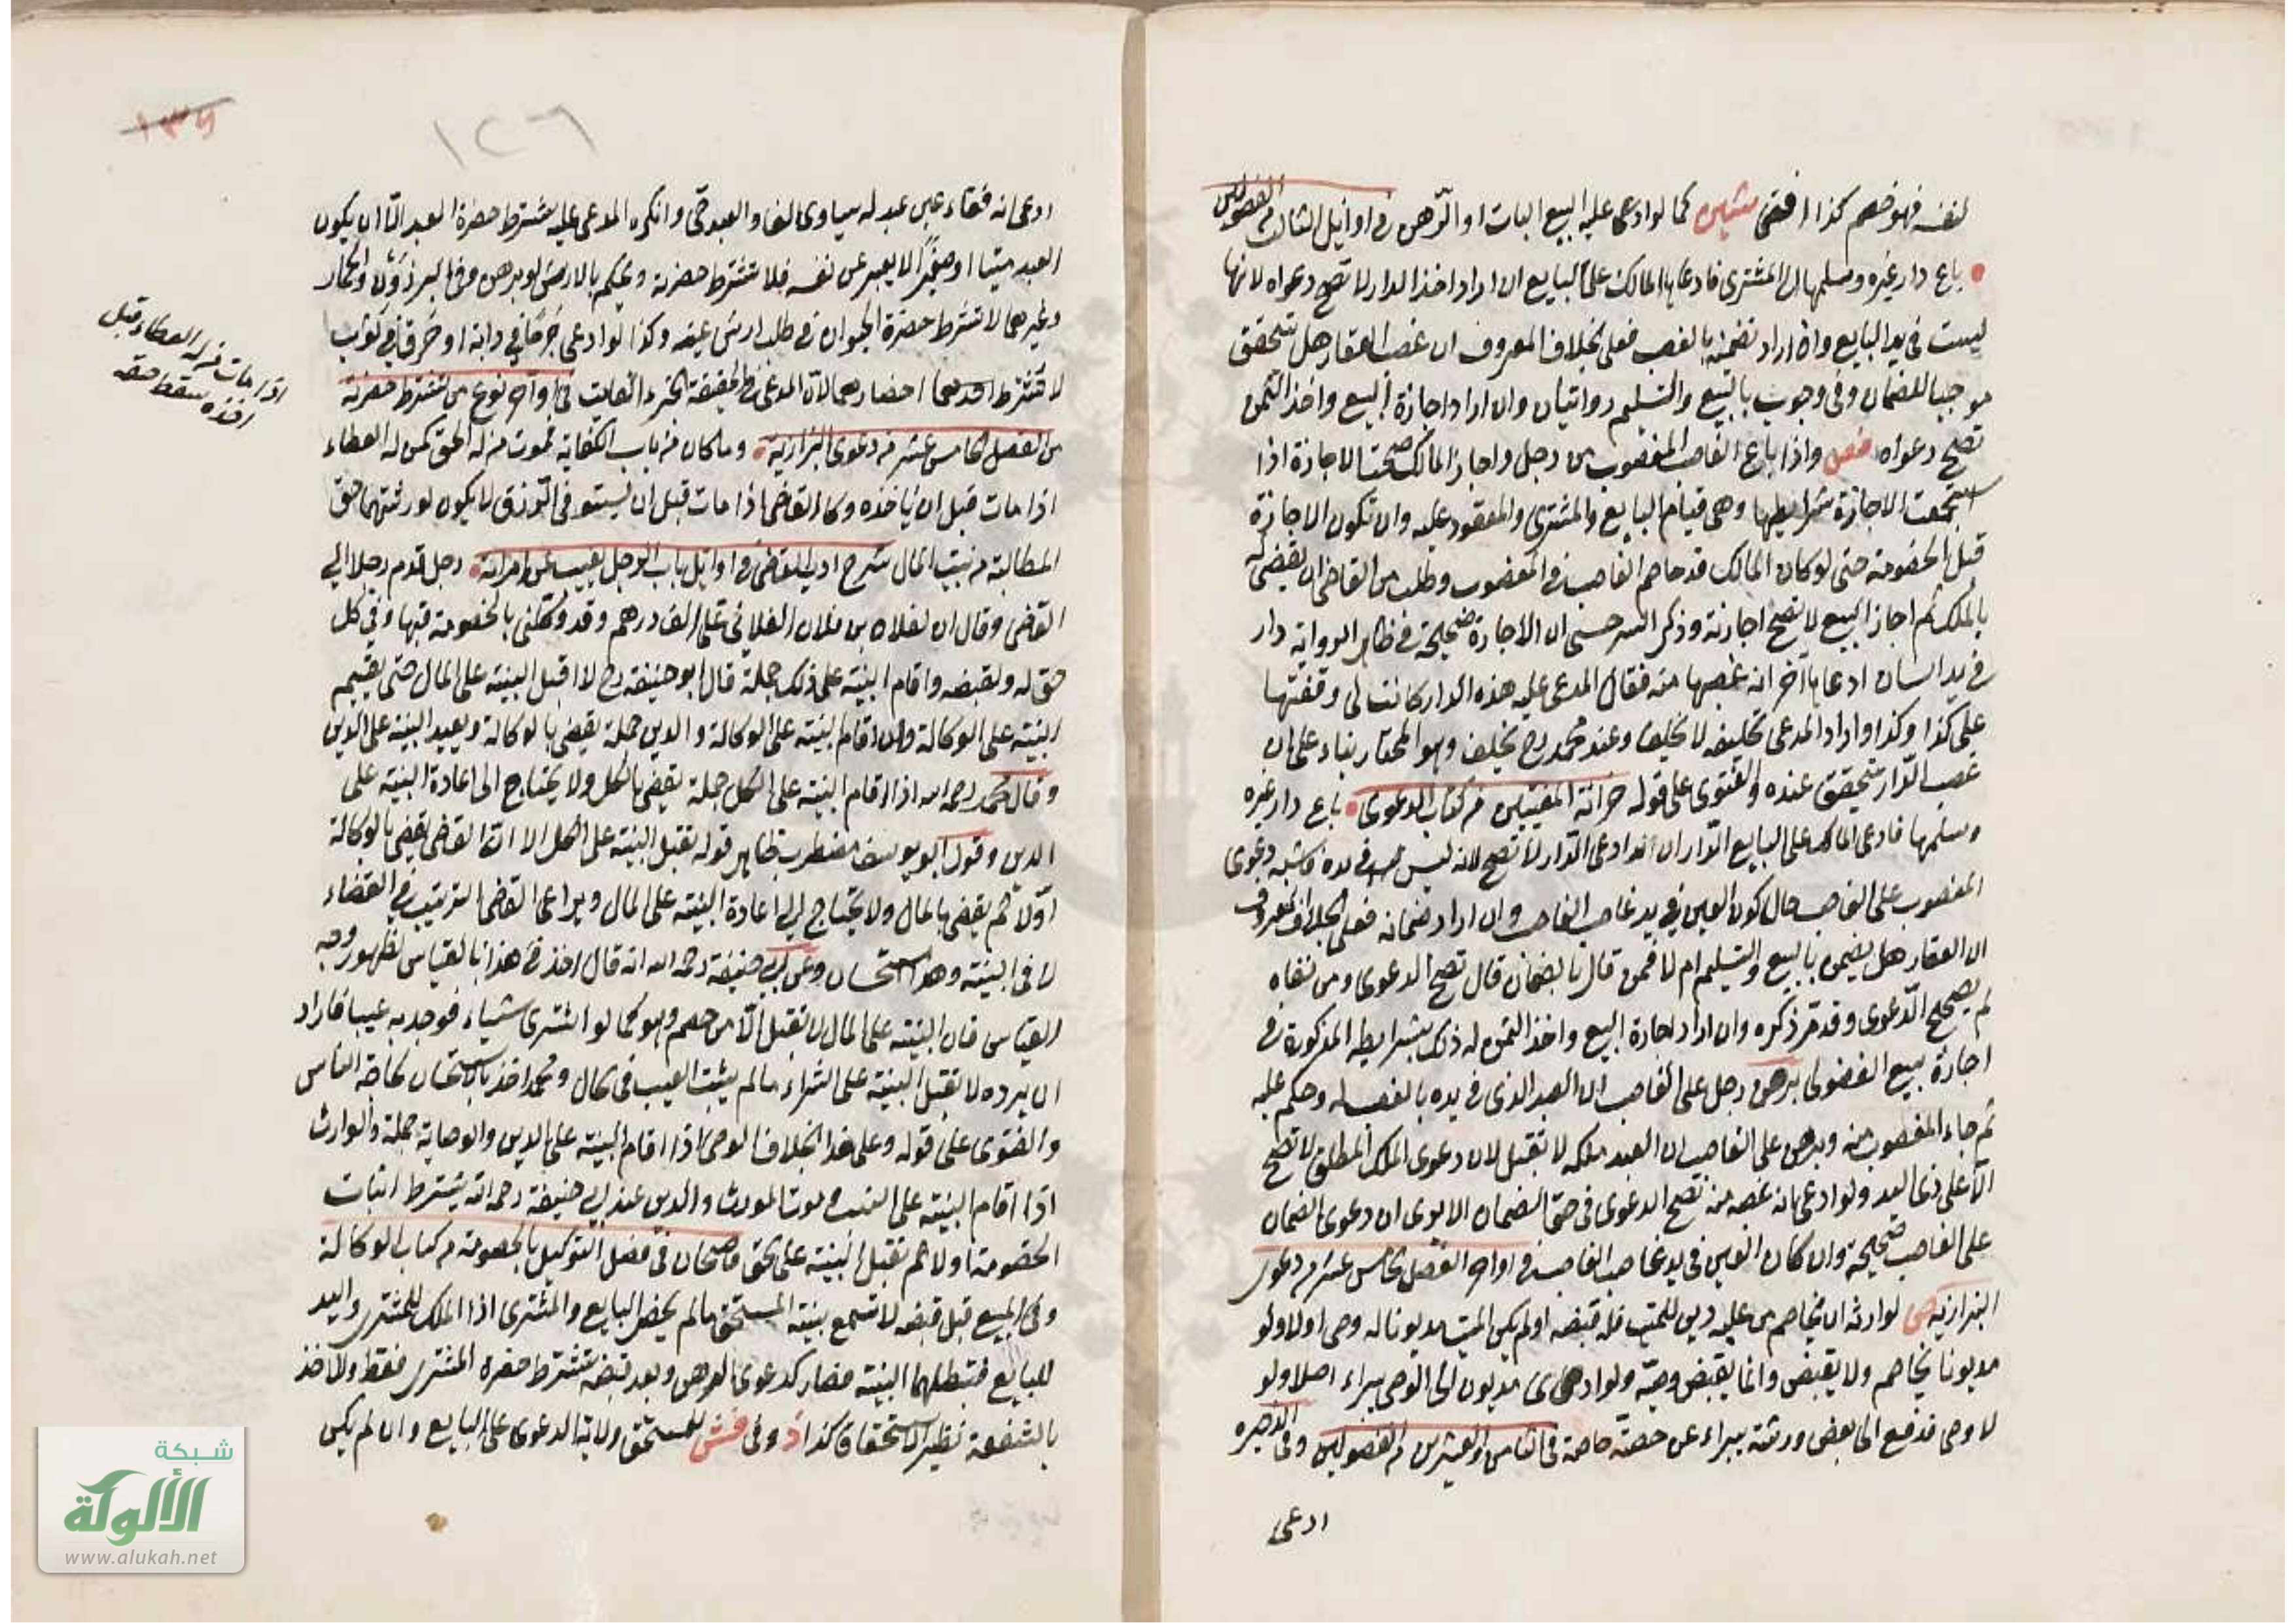 لنفسه فهو خصم كذا افتى كما لو ادعى عليه البيع البات او الرهن في اوائل الثالث من الفصولين
باع دار غيره وسلمها الى المشترى فادعاها المالك على البايع ان اراد اخذ الدار لا تصح دعواه لانها
ليست في يد البايع وان اراد تضمينه بالغصب فعلى الخلاف المعروف ان غصب العقار هل يتحقق
موجبا للضمان وفى وجوبه بالبيع والتسليم روايتان وان اراد اجازة البيع واخذ الثمن
تصح دعواه فصل واذا باع الغاصب المغصوب من رجل واجاز المالك صحت الاجازة اذا
استجمعت الاجازة شرايطها وهى قيام البايع والمشترى والمعقود عليه وان تكون الاجازة
قبل الخصومة حتى لو كان المالك قد خاصم الغاصب في المغصوب وطلب من القاضى ان يقضى له
بالملك ثم اجاز البيع لا تصح اجازته وذكر السرخسى ان الاجازة صحيحة في ظاهر الرواية دار
في يد انسان ادعاها آخر انه غصبها منه فقال المدعى عليه هذه الدار كانت لى وقفتها
على كذا وكذا واراد المدعى تحليفه لا يحلف وعند محمد رح يحلف وهو المختار بناء على ان
غصب الدار يتحقق عنده والفتوى على قوله خزانة المفتيين من كتاب الدعوى باع دار غيره
وسلمها فادعى المالك على البايع الدار ان ادعى الدار لا تصح لانه ليس في يده وشبه دعوى
المغصوب على الغاصب حال كون العين في يد غاصب الغاصب وان اراد ضمانه فعلى الخلاف المعروف
ان العقار هل يضمن بالبيع والتسليم ام لا فمن قال بالضمان قال تصح الدعوى ومن نفاه
لم يصحح الدعوى وقد مر ذكره وان اراد اجازة البيع واخذ الثمن له ذلك بشرايطه المذكورة في
اجازة بيع الفضولى برهن رجل على الغاصب ان العبد الذى في يده بالغصب له وحكم عليه
ثم جاء المغصوب منه وبرهن على الغاصب ان العبد ملكه لا تقبل لان دعوى الملك المطلق لا تصح
الا على ذى اليد ولو ادعى انه غصبه منه تصح الدعوى في حق الضمان الا يرى ان دعوى الضمان
على الغاصب صحيحة وان كان العين في يد غاصب الغاصب في اواخر الفصل الخامس عشر من دعوى
البزازية لوارثه ان يخاصم من عليه دين للميت فله قبضه او لم يكن الميت مديونا له وصى اولا ولو
مديونا يخاصم ولا يقبض وانما يقبض وصيه ولو ادى مديون الى الوصى يبراء اصلا ولو
لا وصى فدفع الى بعض ورثته يبراء عن حصته خاصة في الثامن والعشرين من الفصولين وفى الذخيره
ادعى
١٢٦
ادعى انه فقاء عين عبد له يساوى الفا والعبد حى وانكره المدعى عليه يشترط حضرة العبد الا ان يكون
العبد ميتا او صغيرا لا يعبر عن نفسه فلا تشترط حضرته ويحكم بالارش لو برهن وفى البرذون والحمار
وغيرهما لا تشترط حضرة الحيوان في طلب ارش عينه وكذا لو ادعى جرحا في دابة او خرقا في ثوب
لا تشترط احضارهما لان المدعى في الحقيقة الجزء الفائت في اواخر نوع من تشترط حضرته
من الفصل الخامس عشر من دعوى البزازية وما كان من باب الكفاية تموت منزلة الحق كمن له العطاء
اذا مات قبل ان ياخذه وكالقاضى اذا مات قبل ان يستوفى الرزق لا يكون لورثتهما حق
المطالبة من بيت المال شرح ادب القاضى في اوائل باب الرجل يغيب عن امراته رجل قدم رجلا الى
القاضى وقال ان لفلان بن فلان الفلانى على الف درهم وقد وكلنى بالخصومة فيها وفى كل
حق له وبقبضه واقام البينة على ذلك جملة قال ابو حنيفة رح لا اقبل البينة على المال حتى يقيم
البينة على الوكالة وان اقام بينته على الوكالة والدين جملة يقضى بالوكالة ويعيد البينة على الدين
وقال محمد رحمه الله اذا اقام البينة على الكل جملة يقضى بالكل ولا يحتاج الى اعادة البينة على
الدين وقول ابو يوسف مضطرب ظاهر قوله تقبل البينة على الكل الا ان القاضى يقضى بالوكالة
اولا ثم يقضى بالمال ولا يحتاج الى اعادة البينة على المال ويراعى القاضى الترتيب في القضاء
لا فى البينة وهذا استحسان وعن ابى حنيفة رحمه الله انه قال اخذ في هذا بالقياس لظهور وجه
القياس فان البينة على المال لا تقبل الا من خصم وهو كما لو اشترى شياء فوجد به عيبا فاراد
ان يرده لا تقبل البينة على الشراء ما لم يثبت العيب فى الحال ومحمد اخذ بالاستحسان لحاجة الناس
والفتوى على قوله وعلى هذا الخلاف الوصى اذا اقام البينة على الدين والوصاية جملة والوارث
اذا اقام البينة على النسب وموت المورث والدين عند ابى حنيفة رحمه الله يشترط اثبات
الخصومة اولا ثم تقبل البينة على الحق قاضيخان فى فصل التوكيل بالخصومة من كتاب الوكالة
وفى المبيع قبل قبضه لا تسمع بينة المستحق ما لم يحضر البايع والمشترى اذا الملك للمشترى واليد
للبايع فتبطلهما البينة فصار كدعوى الرهن وبعد قبضه تشترط حضره المشترى فقط والاخذ
بالشفعة نظير الاستحقاق كذا وفى للمستحق ولاية الدعوى على البايع وان لم يكن
اذا مات من له العطاء قبل
اخذه سقط حقه
شبكة
الألوكة
www.alukah.net